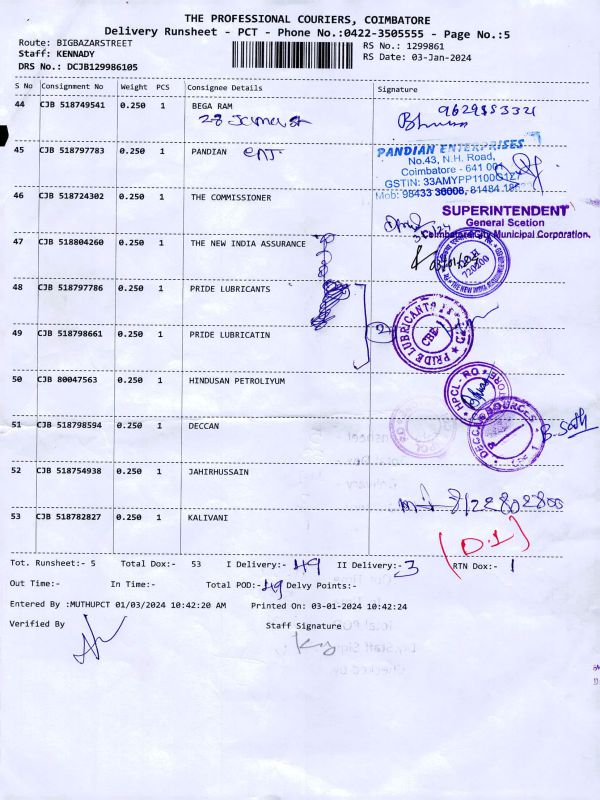 THE PROFESSIONAL COURIERS, COIMBATORE
Delivery Runsheet - PCT - Phone No.:0422-3505555 - Page No.:5
Route: BIGBAZARSTREET
Staff: KENNADY
DRS No.: DCJB129986105
RS No.: 1299861
RS Date: 03-Jan-2024
S No Consignment No Weight PCS Consignee Details Signature
44 CJB 518749541 0.250 1 BEGA RAM
45 CJB 518797783 0.250 1 PANDIAN
PANDIAN ENTERPRISES
No.43, N.H. Road,
Coimbatore - 641 001
46 CJB 518724302 0.250 1 THE COMMISSIONER
SUPERINTENDENT
General Scetion
Coimbatore City Municipal Corporation.
47 CJB 518804260 0.250 1 THE NEW INDIA ASSURANCE
720200
48 CJB 518797786 0.250 1 PRIDE LUBRICANTS
2
PRIDE LUBRICANTS
CBE
49 CJB 518798661 0.250 1 PRIDE LUBRICATIN
50 CJB 80047563 0.250 1 HINDUSAN PETROLIYUM
HPCL-RO
51 CJB 518798594 0.250 1 DECCAN
B. Sath
52 CJB 518754938 0.250 1 JAHIRHUSSAIN
53 CJB 518782827 0.250 1 KALIVANI
(D.L)
Tot. Runsheet:- 5 Total Dox:- 53 I Delivery:- 49 II Delivery:- 3 RTN Dox:- 1
Out Time:- In Time:- Total POD:- 49 Delvy Points:-
Entered By :MUTHUPCT 01/03/2024 10:42:20 AM Printed On: 03-01-2024 10:42:24
Verified By Staff Signature